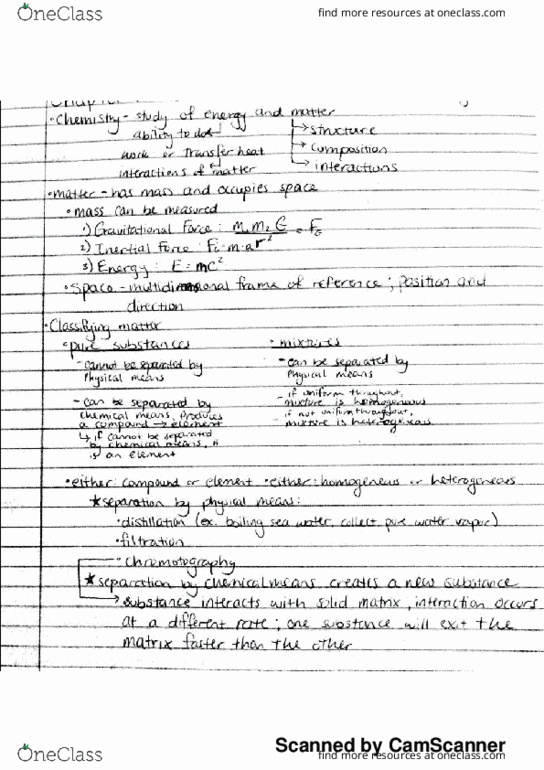 OneClass
find more resources at oneclass.com
•Chemistry - study of energy and matter
ability to do
work or transfer heat
interactions of matter
→structure
→composition
→interactions
•matter - has mass and occupies space
•mass can be measured
1) Gravitational Force: m₁m₂G = F_G
2) Inertial Force: F_i = m·ar²
3) Energy: E = mc²
•space - multidimensional frame of reference; position and
direction
•Classifying matter
•pure substances
- cannot be separated by
Physical means
- can be separated by
chemical means, produces
a compound → element
↳ if cannot be separated
by chemical means, it
is an element
•mixtures
- can be separated by
Physical means
- if uniform throughout,
mixture is homogeneous
if not uniform throughout,
- mixture is heterogeneous
•either: compound or element •either: homogeneous or heterogeneous
★separation by physical means:
•distillation (ex. boiling sea water, collect pure water vapor)
•filtration
•chromotography
★separation by chemical means creates a new substance
→substance interacts with solid matrix, interaction occurs
at a different rate; one substance will exit the
matrix faster than the other
Scanned by CamScanner
OneClass
find more resources at oneclass.com